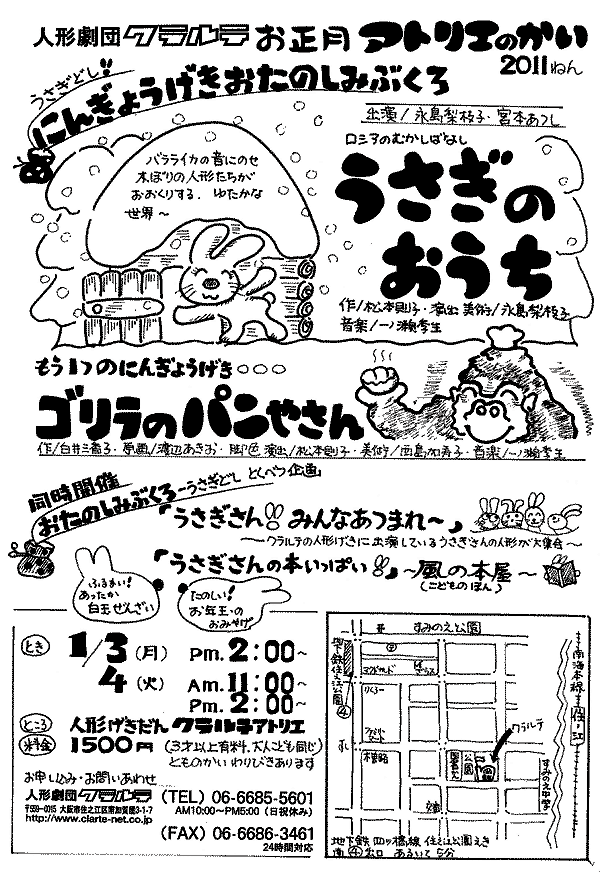 人形劇団クラルテ お正月 アトリエのかい
2011ねん
うさぎどし!!
にんぎょうげきおたのしみぶくろ
出演/永島梨枝子・宮本あつし
バラライカの音にのせ
木ぼりの人形たちが
おおくりする、ゆたかな
世界〜
ロシアのむかしばなし
うさぎの
おうち
作/松本則子・演出 美術/永島梨枝子
音楽/一ノ瀬季生
もう1つのにんぎょうげき○○○
ゴリラのパンやさん
作/白井三香子・原画/渡辺あきお・脚色 演出/松本則子・美術/西島加寿子・音楽/一ノ瀬季生
同時開催
おたのしみぶくろ〜うさぎどし とくべつ企画
「うさぎさん!! みんなあつまれ〜」
〜クラルテの人形げきに出演しているうさぎさんの人形が大集合〜
「うさぎさんの本いっぱい!!」〜風の本屋〜
(こどものほん)
ふるまい!
あったか
白玉ぜんざい
たのしい!
お年玉の
おみやげ
とき
1/3(月) Pm. 2:00〜
4(火) Am. 11:00〜
Pm. 2:00〜
ところ 人形げきだん クラルテアトリエ
料金 1500円 (3才以上有料、大人こども同じ)
とものかい わりびきあります
お申し込み・お問いあわせ
人形劇団クラルテ
〒559-0015 大阪市住之江区南加賀屋3-1-7
http://www.clarte-net.co.jp
(TEL) 06-6685-5601
AM10:00〜PM5:00(日祝休み)
(FAX) 06-6686-3461
24時間対応
すみのえ公園
地下鉄住之江公園
④
マクドナルド
公園
クラルテ
南海本線
住ノ江
すみのえ中学
地下鉄 四ツ橋線 住之江公園えき
南④出口 あるいて5分